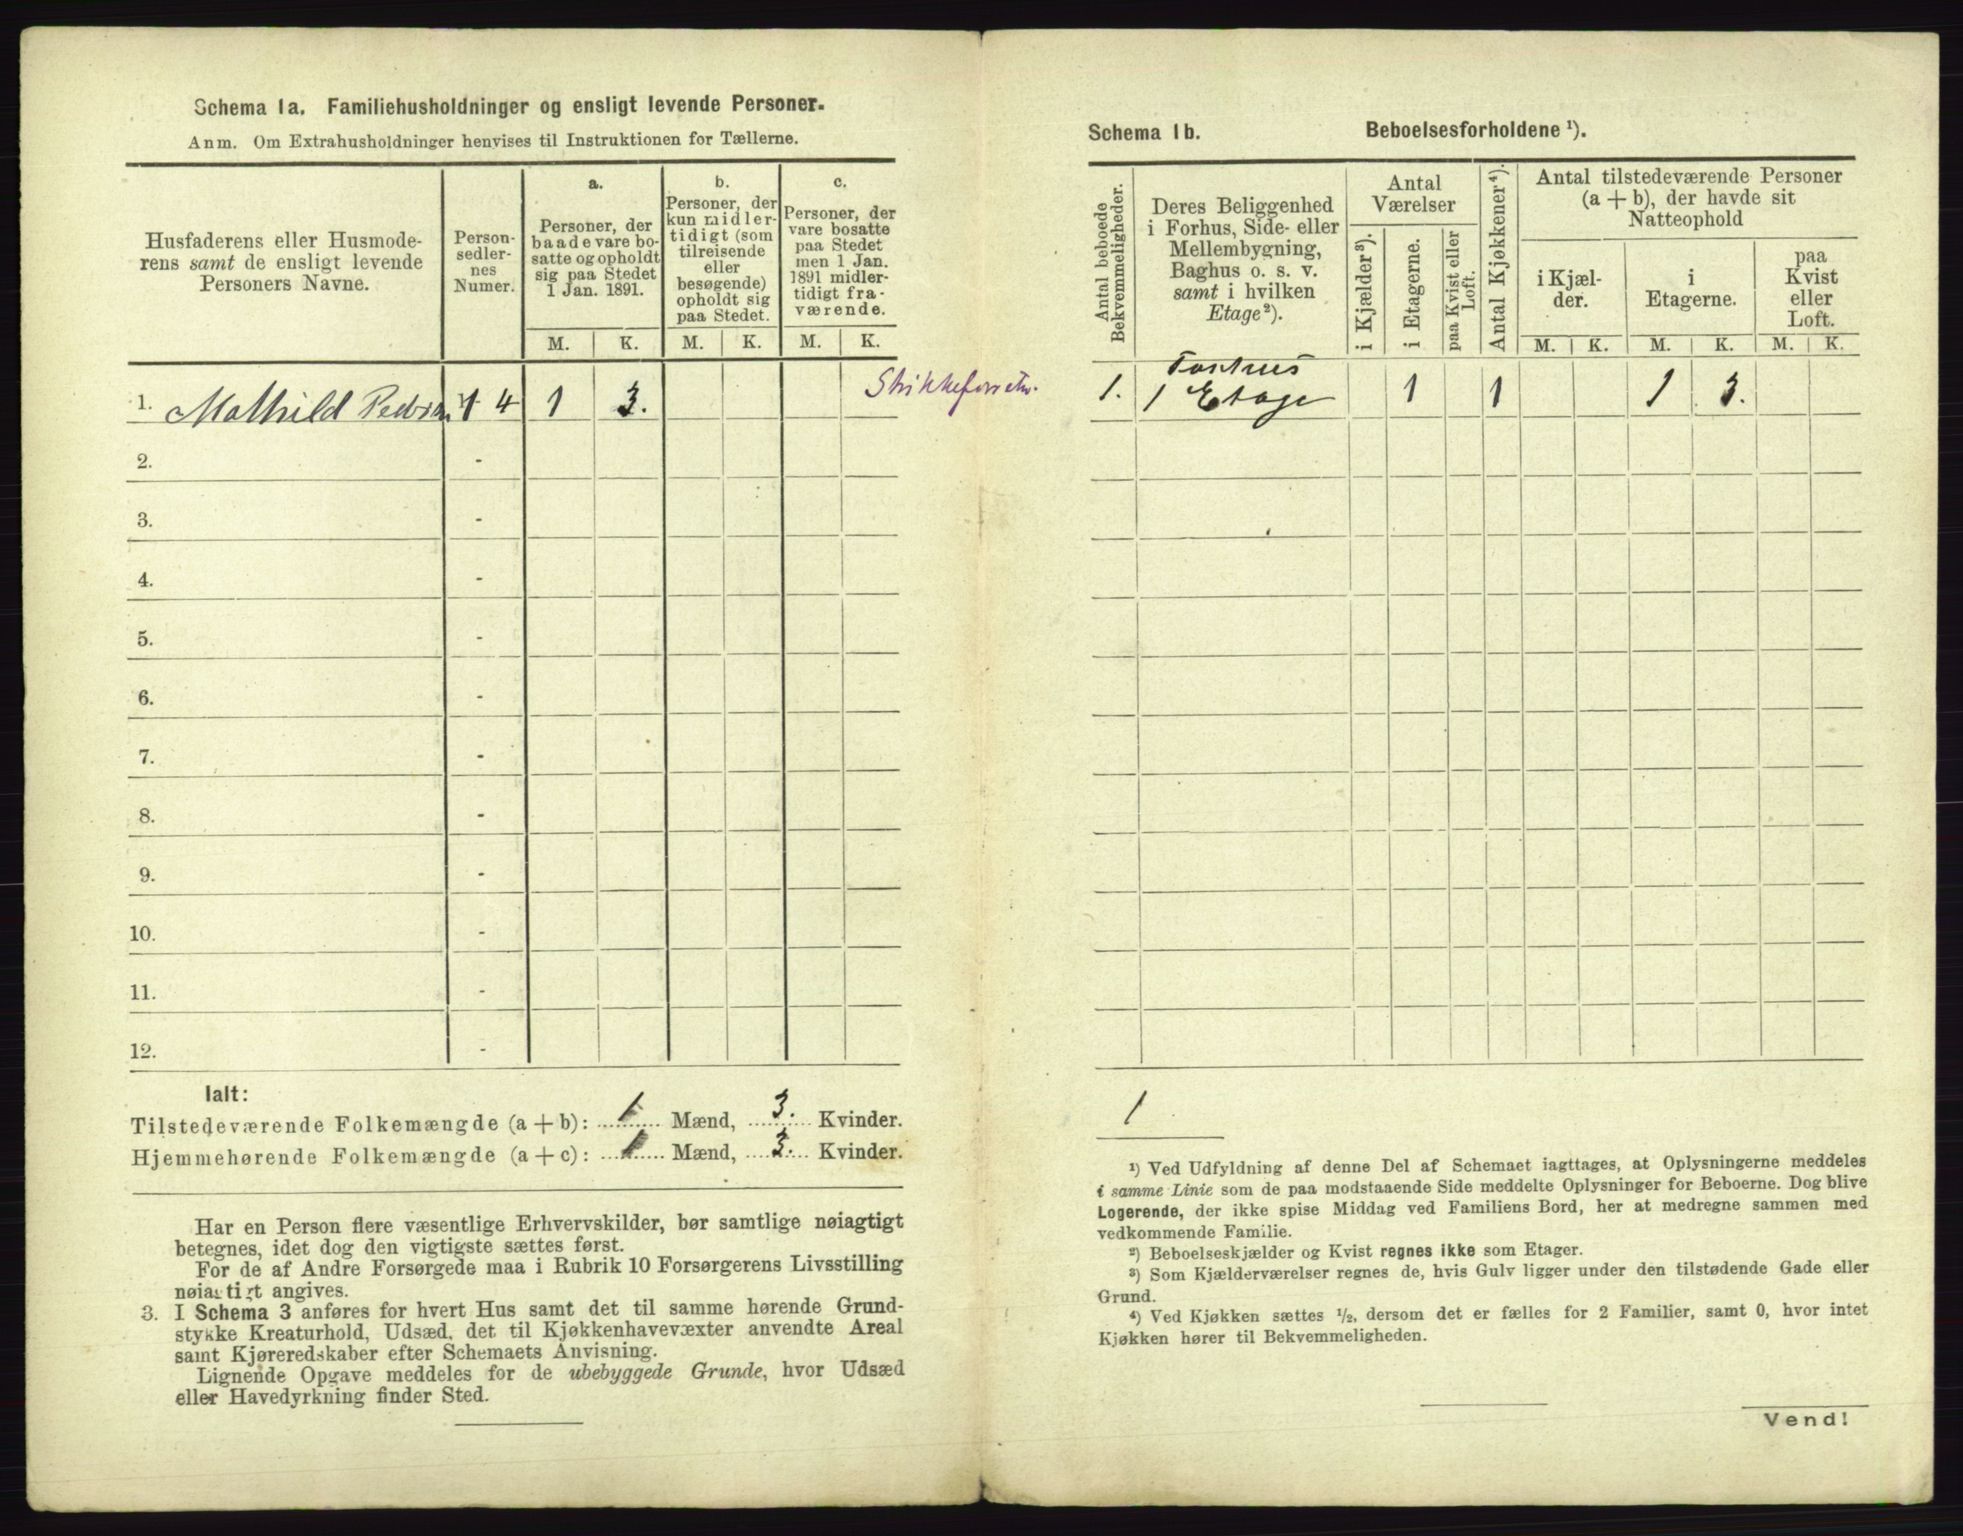 Schema 1a. Familiehusholdninger og ensligt levende Personer.
Anm. Om Extrahusholdninger henvises til Instruktionen for Tællerne.
Husfaderens eller Husmode-
rens samt de ensligt levende
Personers Navne.
Person-
sedler-
nes
Numer.
a.
Personer, der
baade vare bo-
satte og opholdt
sig paa Stedet
1 Jan. 1891.
b.
Personer, der
kun midler-
tidigt (som
tilreisende
eller
besøgende)
opholdt sig
paa Stedet.
c.
Personer, der
vare bosatte
paa Stedet
men 1 Jan.
1891 midler-
tidigt fra-
værende.
M. K. M. K. M. K.
1. Mathild 1-4 1 3.
2. -
3. -
4. -
5. -
6. -
7. -
8. -
9. -
10. -
11. -
12. -
Ialt:
Tilstedeværende Folkemængde (a + b): 1 Mænd, 3. Kvinder.
Hjemmehørende Folkemængde (a + c): 1 Mænd, 3. Kvinder.
Har en Person flere væsentlige Erhvervskilder, bør samtlige nøiagtigt
betegnes, idet dog den vigtigste sættes først.
For de af Andre Forsørgede maa i Rubrik 10 Forsørgerens Livsstilling
nøiagtigt angives.
3. I Schema 3 anføres for hvert Hus samt det til samme hørende Grund-
stykke Kreaturhold, Udsæd, det til Kjøkkenhavevæxter anvendte Areal
samt Kjøreredskaber efter Schemaets Anvisning.
Lignende Opgave meddeles for de ubebyggede Grunde, hvor Udsæd
eller Havedyrkning finder Sted.
Schema 1b. Beboelsesforholdene ¹).
Antal beboede
Bekvemmeligheder.
Deres Beliggenhed
i Forhus, Side- eller
Mellembygning,
Baghus o. s. v.
samt i hvilken
Etage²).
Antal
Værelser
i Kjælder³).
i Etagerne.
paa Kvist eller
Loft.
Antal Kjøkkener⁴).
Antal tilstedeværende Personer
(a + b), der havde sit
Natteophold
i Kjæl-
der.
i
Etagerne.
paa
Kvist
eller
Loft.
M. K. M. K. M. K.
1. 1 Etage 1 1 1 3.
1
¹) Ved Udfyldning af denne Del af Schemaet iagttages, at Oplysningerne meddeles
i samme Linie som de paa modstaaende Side meddelte Oplysninger for Beboerne. Dog blive
Logerende, der ikke spise Middag ved Familiens Bord, her at medregne sammen med
vedkommende Familie.
²) Beboelseskjælder og Kvist regnes ikke som Etager.
³) Som Kjælderværelser regnes de, hvis Gulv ligger under den tilstødende Gade eller
Grund.
⁴) Ved Kjøkken sættes ½, dersom det er fælles for 2 Familier, samt 0, hvor intet
Kjøkken hører til Bekvemmeligheden.
Vend!